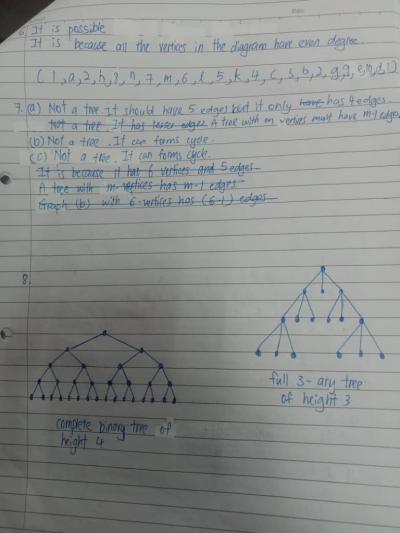 6. It is possible
It is because all the vertices in the diagram have even degree.
(1, a, 2, h, 8, n, 7, m, 6, l, 5, k, 4, c, 3, b, 2, g, 9,
7. (a) Not a tree. It should have 5 edges but it only have has 4 edges.
Not a tree. It has lesser edges A tree with m vertices must have m-1 edges
(b) Not a tree. It can forms cycle.
(c) Not a tree. It can forms cycle.
It is because it has 6 vertices and 5 edges
A tree with m-vertices has m-1 edges
Graph (b) with 6-vertices has (6-1) edges
8.
full 3-ary tree
of height 3
complete binary tree of
height 4